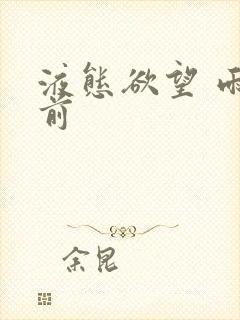 液态欲望 雨
前
余昆